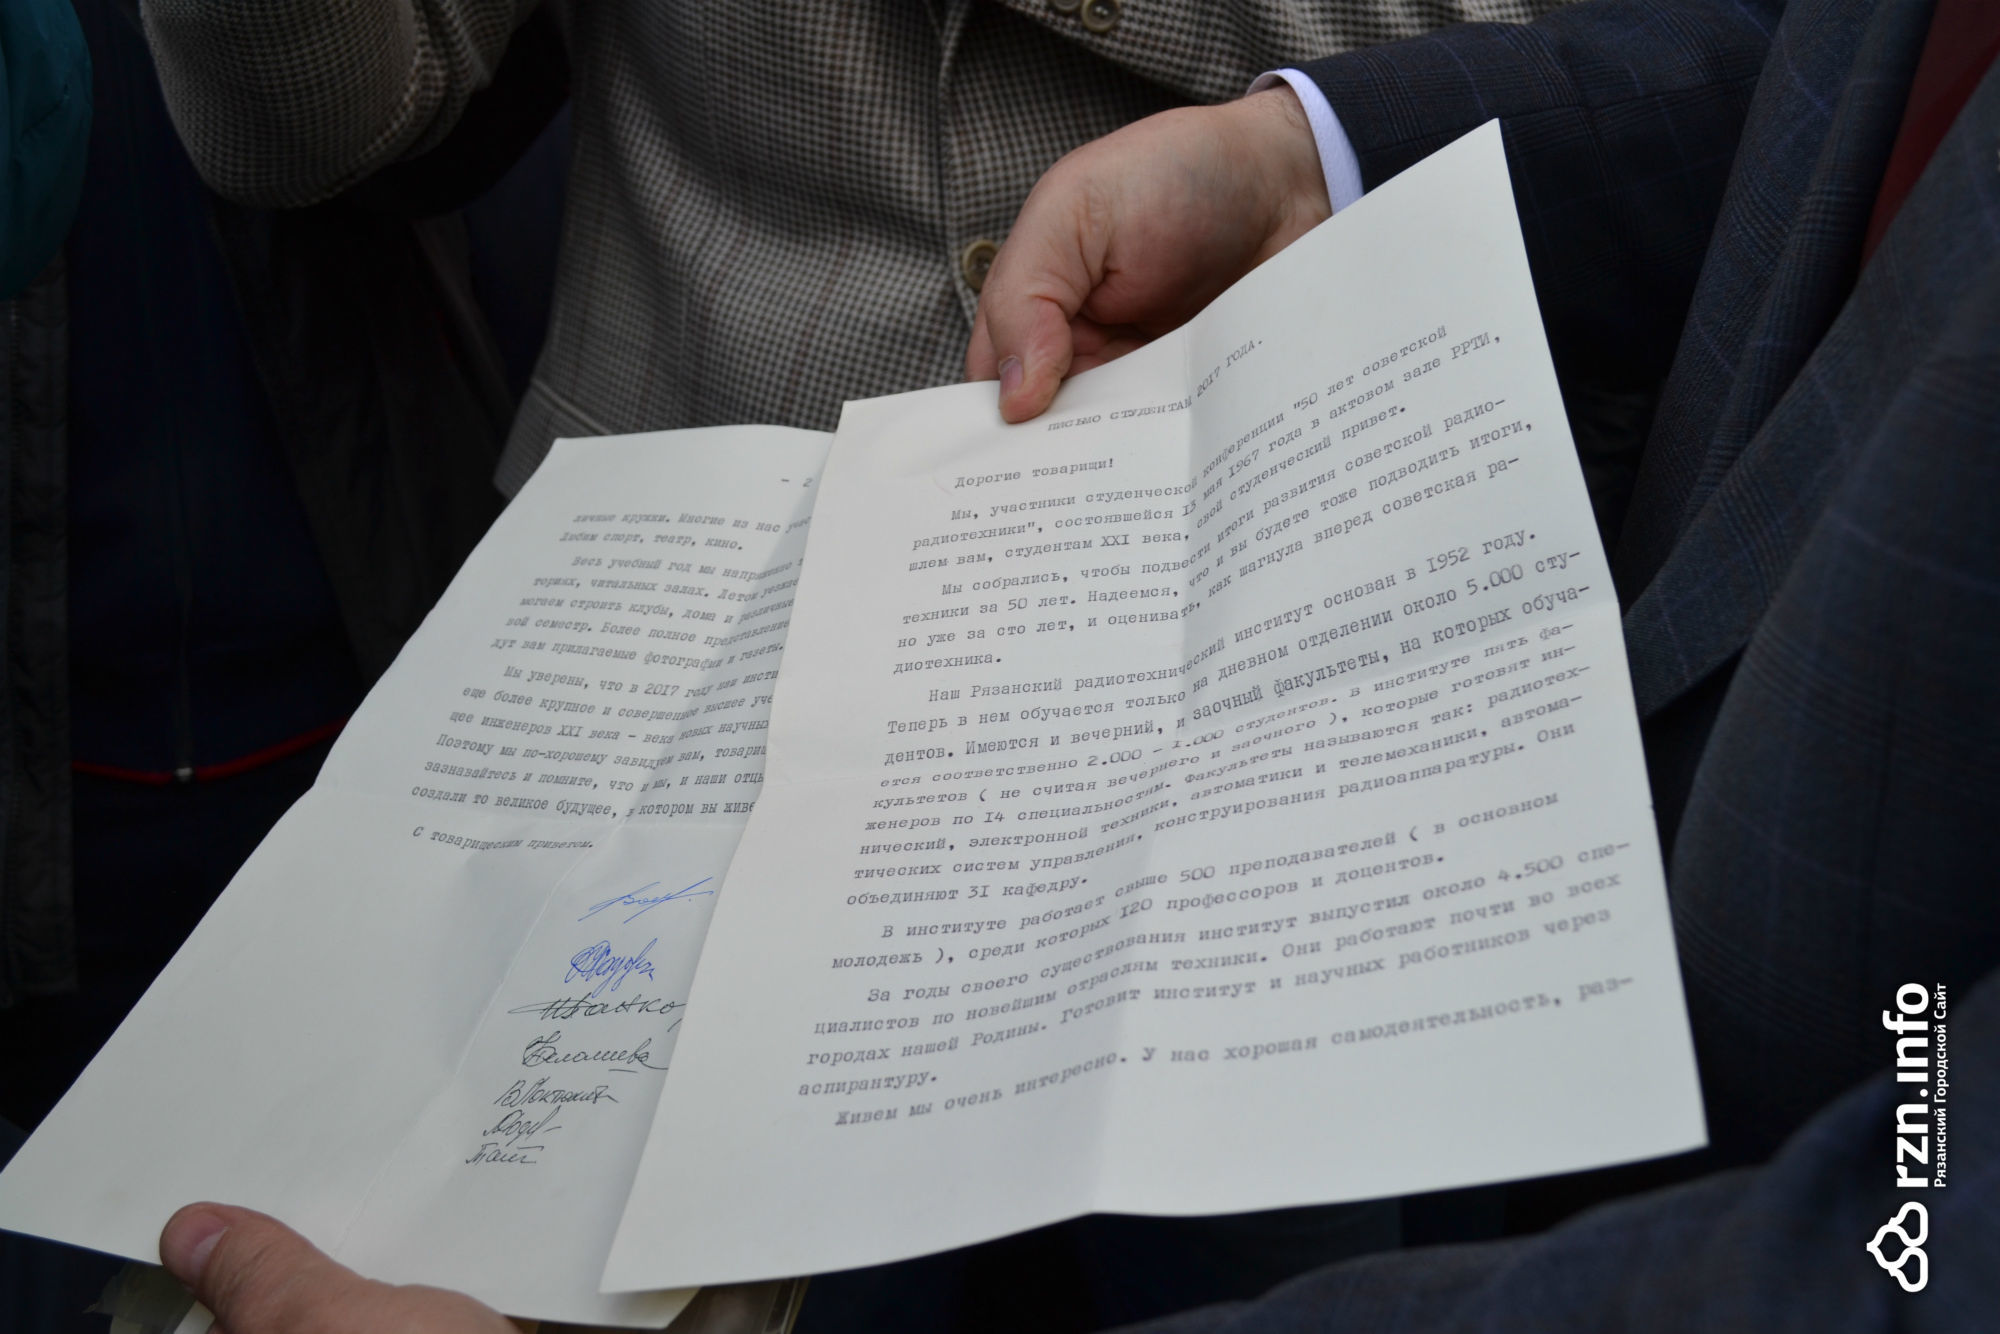 ПИСЬМО СТУДЕНТАМ 2017 ГОДА.
Дорогие товарищи!
Мы, участники студенческой конференции "50 лет советской
радиотехники", состоявшейся 13 мая 1967 года в актовом зале РРТИ,
шлем вам, студентам XXI века, свой студенческий привет.
Мы собрались, чтобы подвести итоги развития советской радио-
техники за 50 лет. Надеемся, что и вы будете тоже подводить итоги,
но уже за сто лет, и оценивать, как шагнула вперед советская ра-
диотехника.
Наш Рязанский радиотехнический институт основан в 1952 году.
Теперь в нем обучается только на дневном отделении около 5.000 сту-
дентов. Имеются и вечерний, и заочный факультеты, на которых обуча-
ется соответственно 2.000 - 1.000 студентов. В институте пять фа-
культетов ( не считая вечернего и заочного ), которые готовят ин-
женеров по 14 специальностям. Факультеты называются так: радиотех-
нический, электронной техники, автоматики и телемеханики, автома-
тических систем управления, конструирования радиоаппаратуры. Они
объединяют 31 кафедру.
В институте работает свыше 500 преподавателей ( в основном
молодежь ), среди которых 120 профессоров и доцентов.
За годы своего существования институт выпустил около 4.500 спе-
циалистов по новейшим отраслям техники. Они работают почти во всех
городах нашей Родины. Готовит институт и научных работников через
аспирантуру.
Живем мы очень интересно. У нас хорошая самодеятельность, раз-
- 2
личные кружки. Многие из нас учас
Любим спорт, театр, кино.
Весь учебный год мы напряженно
ториях, читальных залах. Летом уезжае
могаем строить клубы, дома и различные
вой семестр. Более полное представление
дут вам прилагаемые фотографии и газеты.
Мы уверены, что в 2017 году наш инсти
еще более крупное и совершенное высшее уче
щее инженеров XXI века - века новых научных
Поэтому мы по-хорошему завидуем вам, товарищ
зазнавайтесь и помните, что и мы, и наши отцы
создали то великое будущее, в котором вы живе
С товарищеским приветом.
rzn.info
Рязанский Городской Сайт